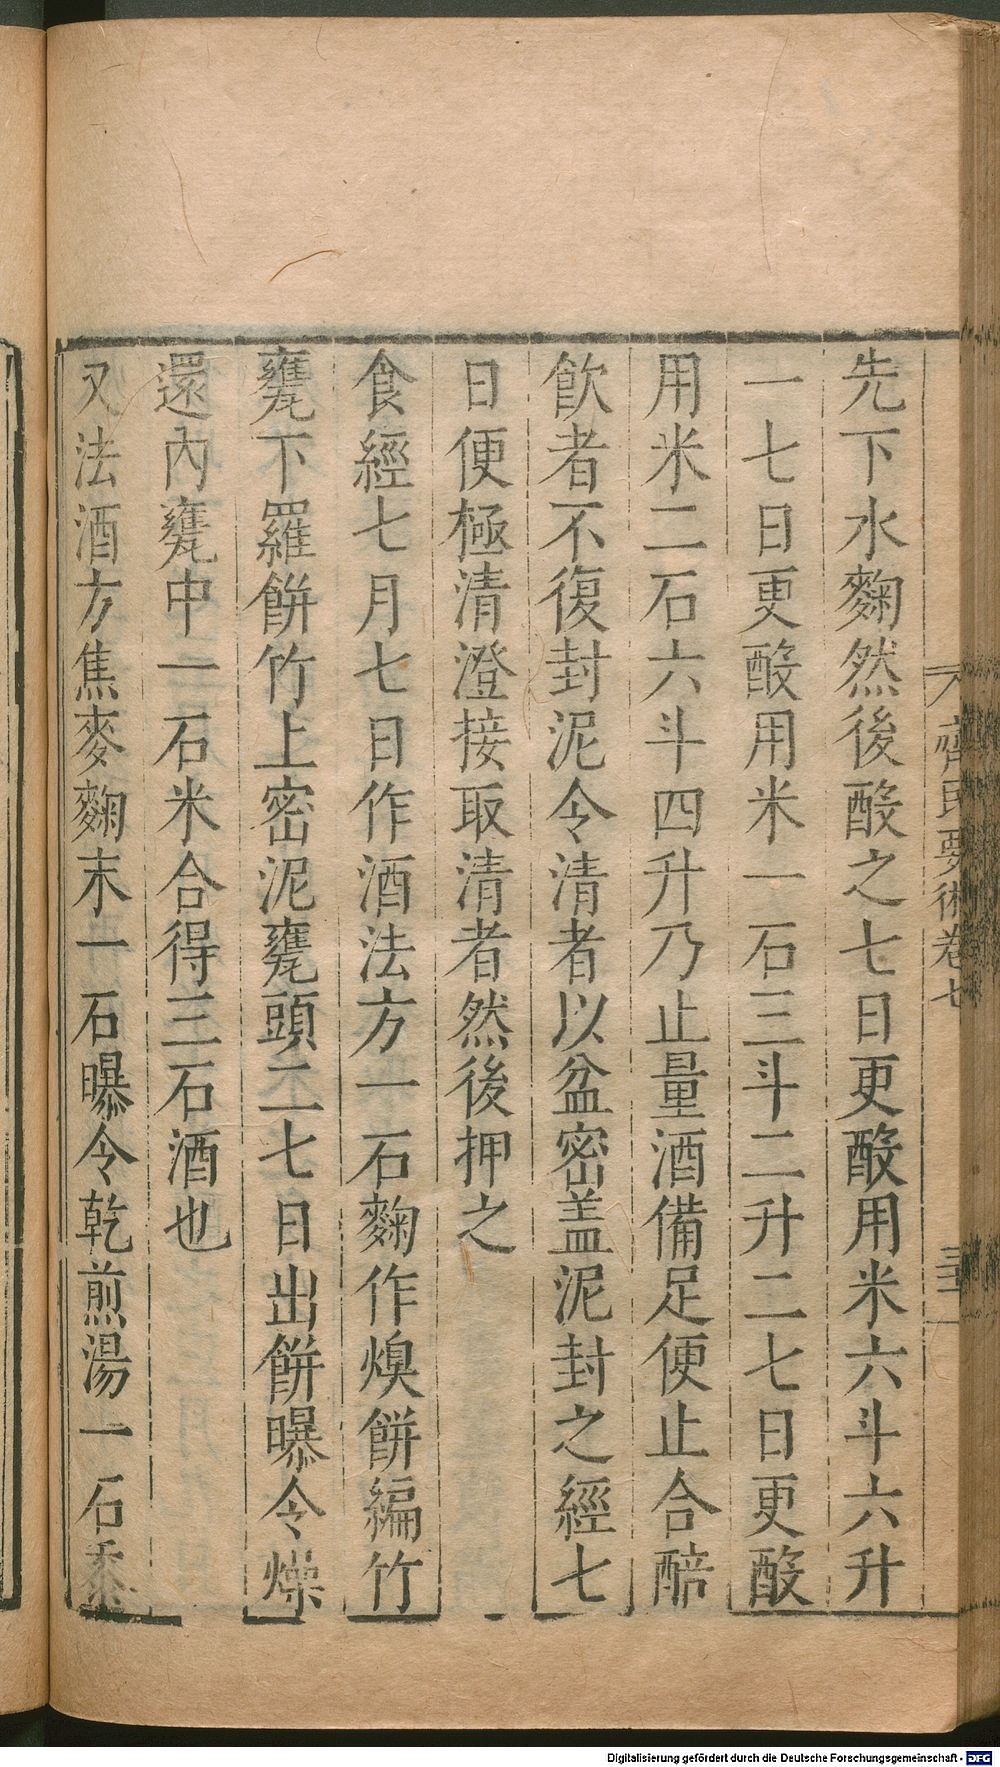 齊民要術卷七
先下水麴然後酘之七日更酘用米六斗六升
一七日更酘用米一石三斗二升二七日更酘
用米二石六斗四升乃止量酒備足便止合醅
飲者不復封泥令清者以盆密盖泥封之經七
日便極清澄接取清者然後押之
食經七月七日作酒法方一石麴作燠餅編竹
甕下羅餅竹上密泥甕頭二七日出餅曝令燥
還內甕中一石米合得三石酒也
又法酒方焦麥麴末一石曝令乾煎湯一石黍
Digitalisierung gefördert durch die Deutsche Forschungsgemeinschaft - DFG